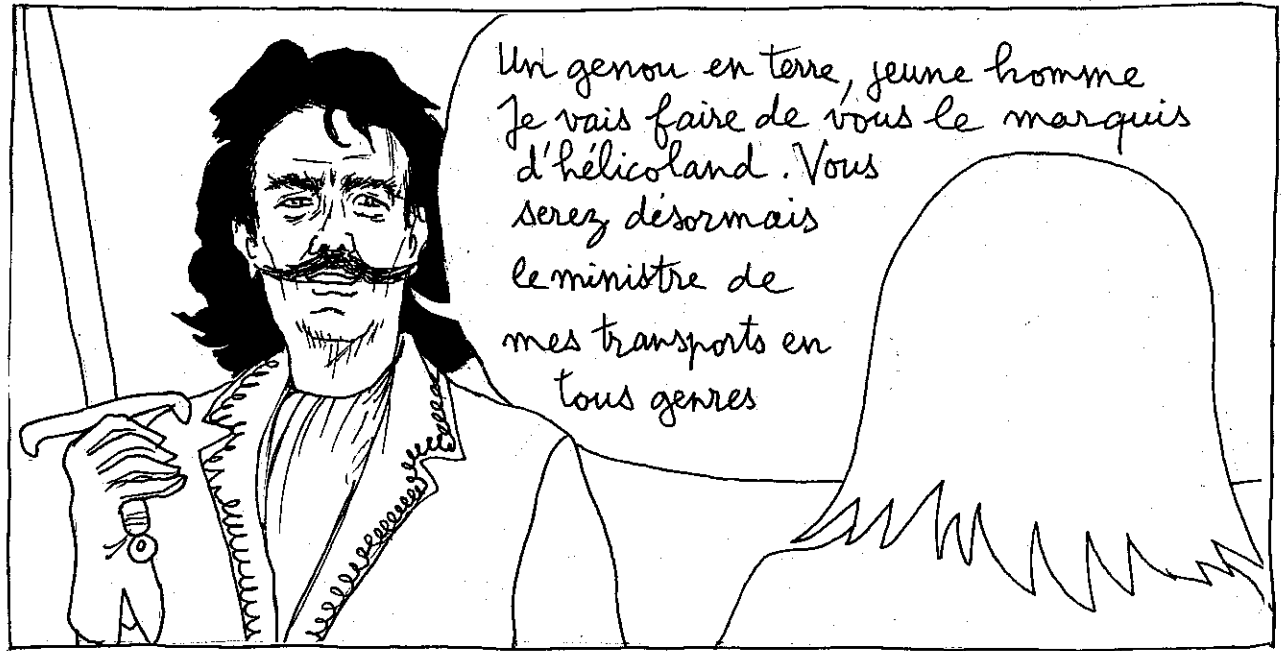 Un genou en terre, jeune homme
Je vais faire de vous le marquis
d'hélicoland. Vous
serez désormais
le ministre de
mes transports en
tous genres